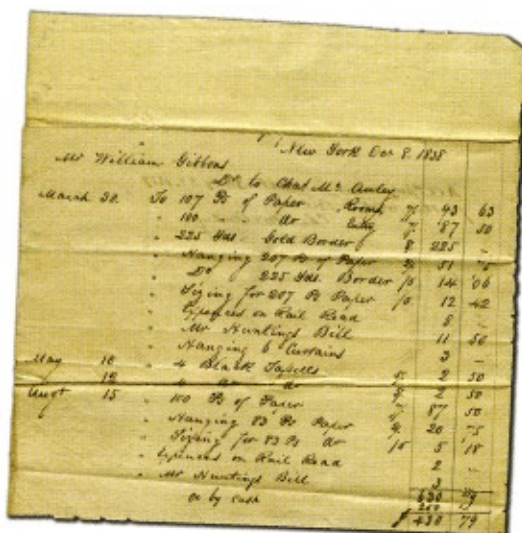 New York Oct 8. 1838
Mr William Gibbons
Dr to Chas Mc Auley
March 30. To 107 Ps of Paper Rooms 93 63
" 100 " do Entry 7/ 87 50
" 225 Yds. Gold Border 8/ 225 -
" Hanging 207 Ps of Paper 2/ 51 75
" Do 225 Yds. Border /6 14 06
" Sizing for 207 Ps Paper /6 12 42
" Expences on Rail Road 8 -
" Mr Huntings Bill 11 50
" Hanging 6 Curtains 3 -
May 10 " 4 Black Tassells 2 50
" 12 " 4 do 2 50
Augt 15 " 100 Ps of Paper 7/ 87 50
" Hanging 83 Ps Paper 2/ 20 75
" Sizing for 83 Ps do 5 18
" Expences on Rail Road 2 -
" Mr Huntings Bill 3
630 79
Cr by cash 200
$ 430 79